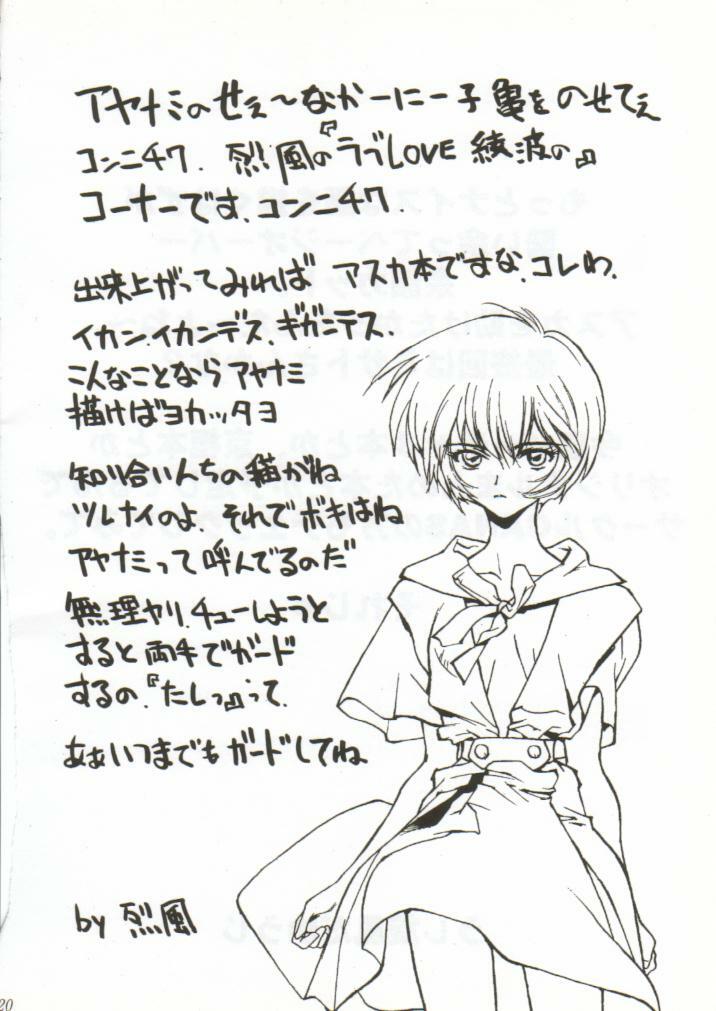 アヤナミのせぇ〜なかーにー子亀をのせてぇ
コンニチワ．烈風の『ラブLOVE綾波の』
コーナーです．コンニチワ．
出来上がってみれば アスカ本ですな．コレわ．
イカン．イカンデス．ギガンテス．
こんなことなら アヤナミ
描けばヨカッタヨ
知り合いんちの猫がね
ツレナイのよ．それでボキはね
アヤナミって呼んでるのだ
無理ヤリ．チューしようと
すると両手でガード
するの．『たしっ』って．
あぁいつまでもガードしてね
by 烈風
20